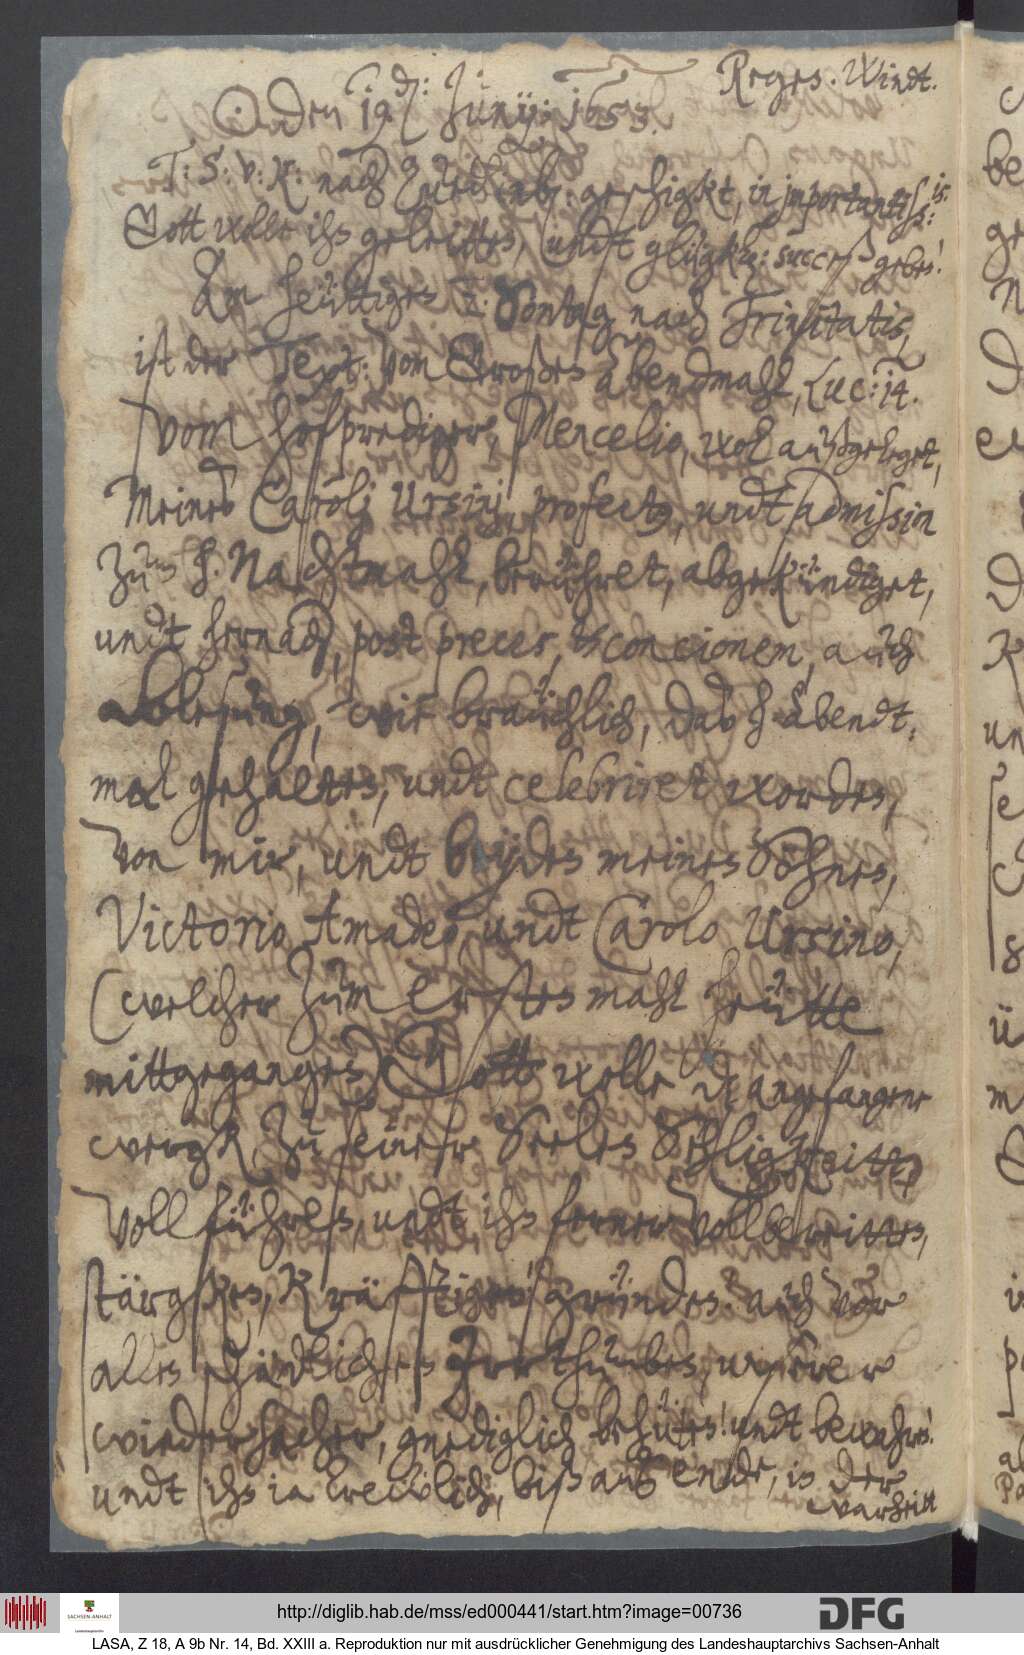 Regen. Windt.
☉ den 19den: Junij: 1653.
T: S: v: K: nach Quedlinb: geschigkt, in importantiss:is:
Gott wolle ihn geleitten, undt glügkl: success geben!
Am heüttigen 2. Sontag nach Trinitatis,
ist der Text: vom Großen Abendmahl, Luc: 14.
vom hofprediger, Mencelio, wol außgeleget,
Meines Carolj Ursinj, profectg, undt admission
zum h. Nachtmahl, berühret, abgekündiget,
undt hernach, post preces, & concionem, auch
ablesung, wie bräuchlich, das h. Abendt-
mal gehalten, undt celebriret worden,
von mir, undt beyden meinen Söhnen,
Victorio Amadeo, undt Carolo Ursino,
(welcher zum ersten mahl heütte
mittgegangen) Gott wolle dz angefangene
wergk, zu seiner Seelen Sehligkeitt,
vollführen, undt ihn ferner vollbereitten,
stärgken, kräfftigen, gründen. auch vor
allen schädlichen Irrthumben, unserer
wiedersacher, gnediglich behüten! undt bewahren!
undt ihn ia trewlich, biß ans ende, in der
warheitt
http://diglib.hab.de/mss/ed000441/start.htm?image=00736
DFG
SACHSEN-ANHALT
LASA, Z 18, A 9b Nr. 14, Bd. XXIII a. Reproduktion nur mit ausdrücklicher Genehmigung des Landeshauptarchivs Sachsen-Anhalt